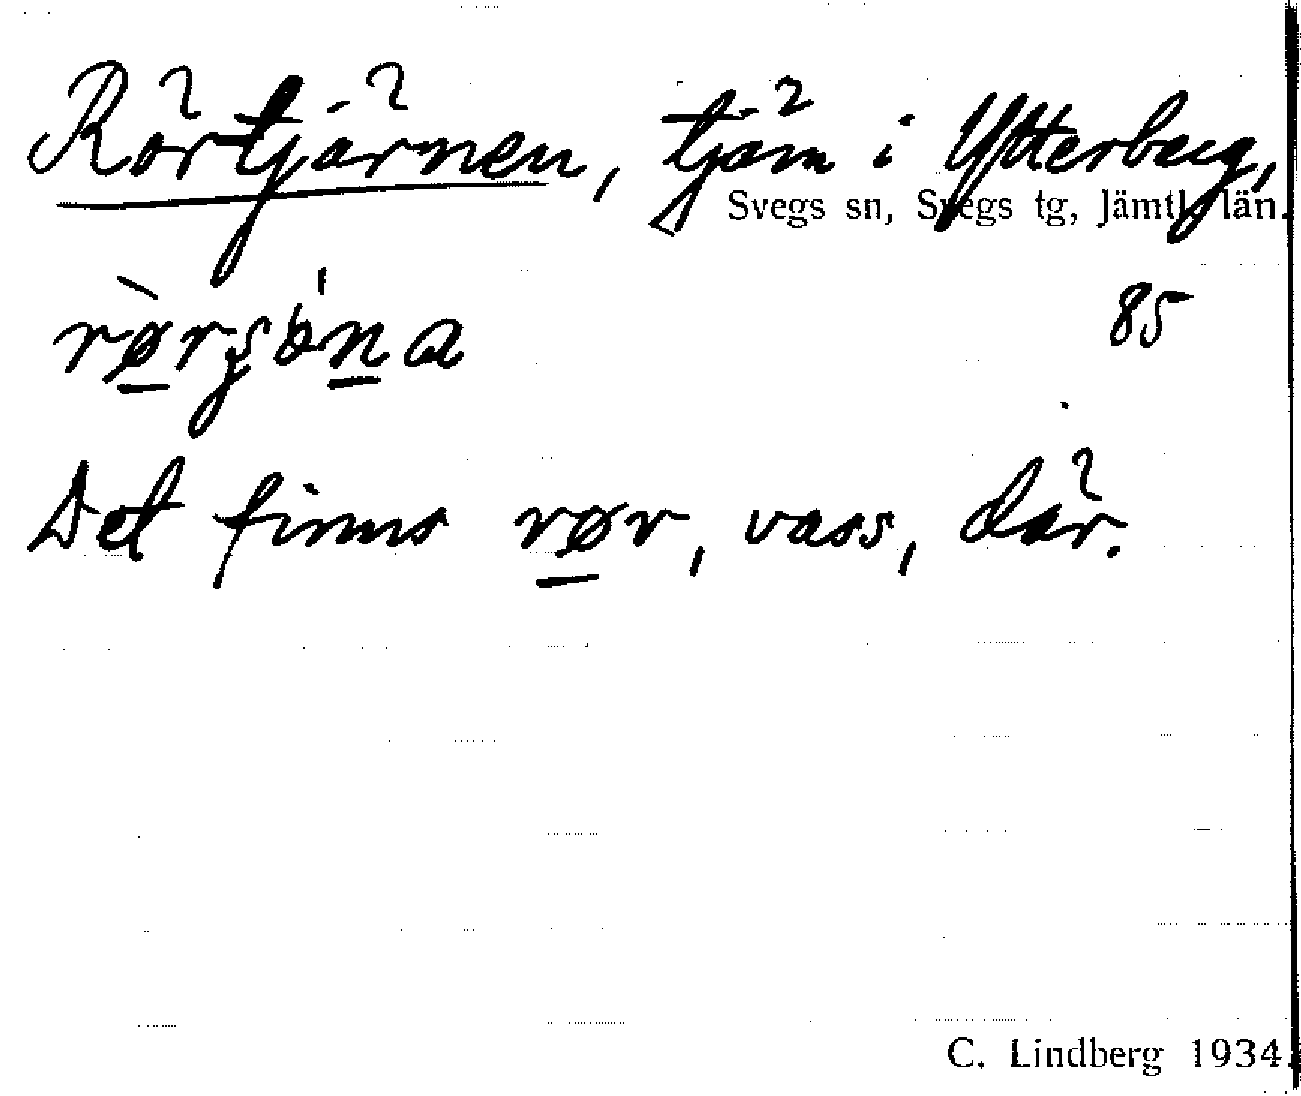 Rörtjärnen, tjärn i Ytterberg,
Svegs sn, Svegs tg, Jämtl. län.
85
Det finns rør, vass, där.
C. Lindberg 1934.